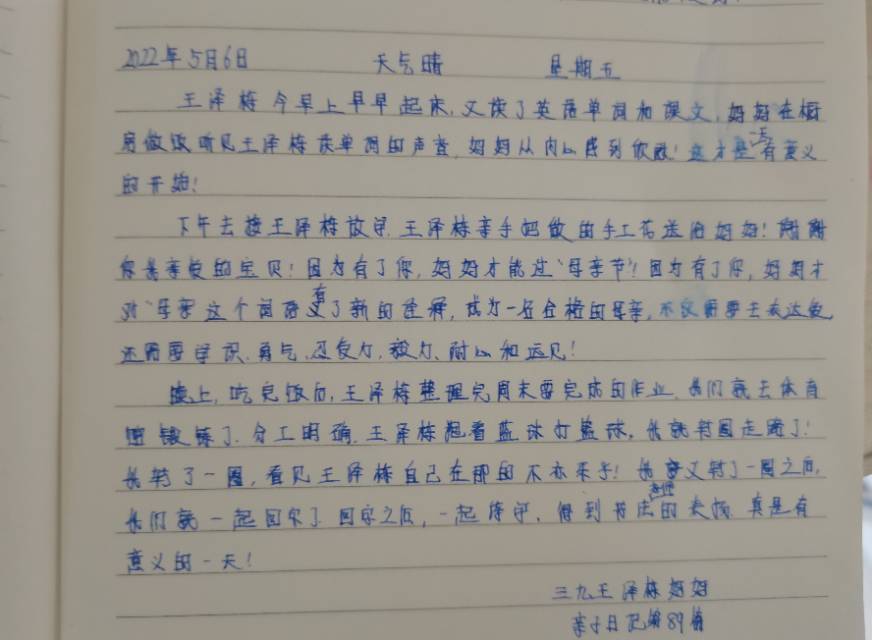 2022年5月6日 天气晴 星期五
王泽栋今早上早早起床,又读了英语单词和课文,妈妈在橱
房做饭听见王泽栋读单词的声音,妈妈从内心感到欣慰!这才是有意义一天
的开始!
下午去接王泽栋放学,王泽栋亲手把做的手工花送给妈妈!谢谢
你我亲爱的宝贝!因为有了你,妈妈才能过“母亲节”!因为有了你,妈妈才
对“母亲”这个词语有了新的诠释,成为一名合格的母亲,不仅需要去表达爱
还需要学识、勇气、忍受力、毅力、耐心和远见!
晚上,吃完饭后,王泽栋整理完周末要完成的作业,我们就去体育
锻炼了,分工明确,王泽栋抱着蓝球打蓝球,我就转圈走路了!
我转了一圈,看见王泽栋自己在那的不亦乐乎!我又转了一圈之后,
我们就一起回家了,回家之后,一起练字,得到书法老师的表扬,真是有
意义的一天!
三九王泽栋妈妈
亲子日记第89篇